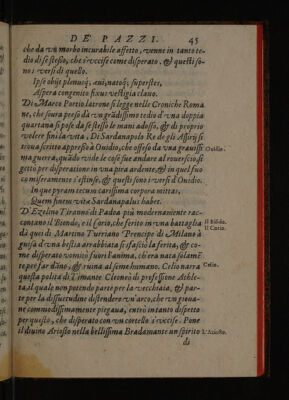 DE' PAZZI. 45
che da vn morbo incurabile affetto, venne in tanto te-
dio di se stesso, che s'vccise come disperato, & questi so-
no i versi di quello.
Ipse obijt plenusq; æui, natoq; superstes,
Aspera congenito fixus vestigia clauo.
Di Marco Portio latrone si legge nelle Croniche Roma
ne, che soura preso da vn grãdissimo tedio d'vna doppia
quartana si pose da se stesso le mani adosso, & di proprio
volere finì la vita. Di Sardanapolo Re de gli Assirij si
troua scritto appresso à Ouidio, che offeso da vna grauissi Ouidio.
ma guerra, quãdo vide le cose sue andare al rouescio, si
getto per disperatione in vna pira ardente, & in quel fuo
co miseramente s'estinse, & questi sono i versi d'Ouidio.
Inque pyram tecum carissima corpora mittas,
Quem finem vitæ Sardanapalus habet.
D'Ezelino Tiranno di Padoa più modernamente rac-
contano il Biondo, e il Corio, che ferito in vna battaglia Il Biõdo.
dà quei di Martino Turriano Prencipe di Milano à Il Corio.
guisa d'vna bestia arrabbiata si sfasciò la ferita, & co-
me disperato vomitò fuori l'anima, ch'era nata solamẽ-
te per far dãno, & ruina al seme humano. Celio narra Celio.
questa pazzia di Timante Cleoneo di professione Athle-
ta, il quale non potendo parte per la vecchiaia, & par-
te per la dissuetudine distendere vn'arco, che vn gioua-
ne commodissimamente piegaua, entro intanto dispetto
per questo, che disperato con vn cortello s'vccise. Pone
il diuino Ariosto nella bellissima Bradamante un spirito L'Ariosto.
di